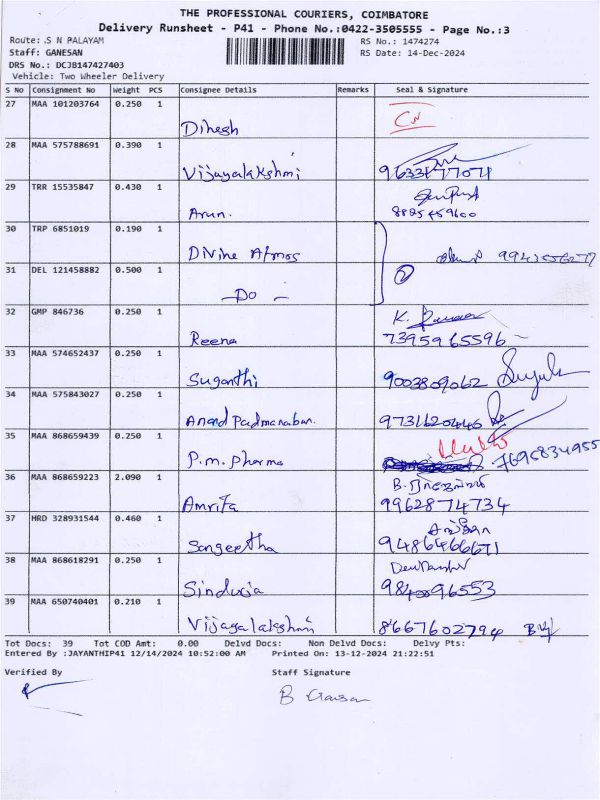 THE PROFESSIONAL COURIERS, COIMBATORE
Delivery Runsheet - P41 - Phone No.:0422-3505555 - Page No.:3
Route: S N PALAYAM
RS No.: 1474274
Staff: GANESAN
RS Date: 14-Dec-2024
DRS No.: DCJB147427403
Vehicle: Two Wheeler Delivery
S No Consignment No Weight PCS Consignee Details Remarks Seal & Signature
27 MAA 101203764 0.250 1
Dinesh
28 MAA 575788691 0.390 1
Vijayalakshmi
29 TRR 15535847 0.430 1
Arun. 8825459600
30 TRP 6851019 0.190 1
Divine Atmos
31 DEL 121458882 0.500 1
- Do - 2
32 GMP 846736 0.250 1
Reena 7395965596
33 MAA 574652437 0.250 1
Suganthi 9003809062
34 MAA 575843027 0.250 1
Anand Padmanaban. 9731620446
35 MAA 868659439 0.250 1
P.m. Pharma 7695834955
36 MAA 868659223 2.090 1
Amrita 9962874734
37 HRD 328931544 0.460 1
Sangeetha 9486466671
38 MAA 868618291 0.250 1
Sinduja 9840096553
39 MAA 650740401 0.210 1
Vijayalakshmi 8667602794
Tot Docs: 39 Tot COD Amt: 0.00 Delvd Docs: Non Delvd Docs: Delvy Pts:
Entered By :JAYANTHIP41 12/14/2024 10:52:00 AM Printed On: 13-12-2024 21:22:51
Verified By Staff Signature